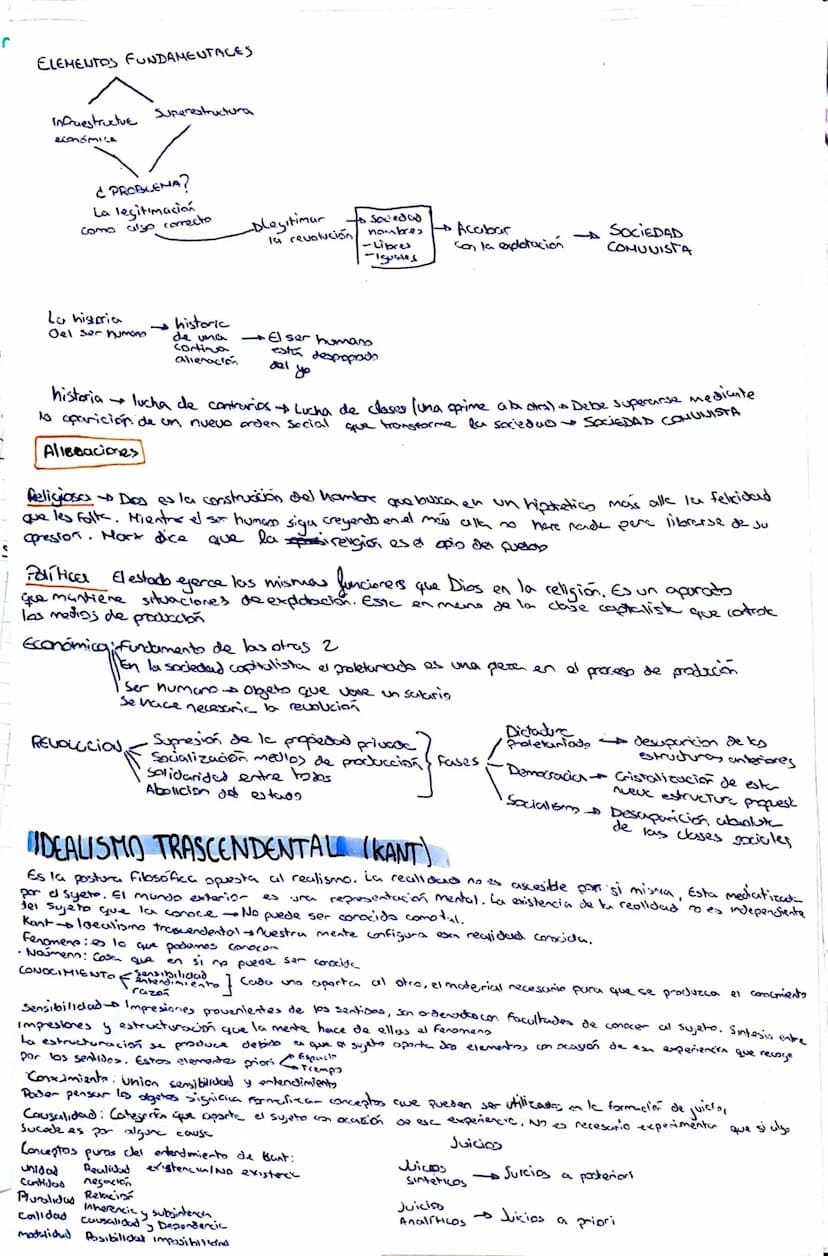 ELEMENTOS FUNDAMENTALES
Infraestructure Superestructura
económica
¿PROBLEMA?
La legitimación
como algo correcto
Legitimar
la revolución
→ sociedad
hombres
- Libres
- Iguales
→ Acabar
con la explotación
→ SOCIEDAD
COMUNISTA
La historia
Del ser humano
→ historia
de una
continua
alienación
→ El ser humano
está despopado
del yo
historia → lucha de contrarios → Lucha de clases (una oprime a la otra) → Debe superarse mediante
la aparición de un nuevo orden social que transforme la sociedad → SOCIEDAD COMUNISTA
Alienaciones
Religiosas → Dios es la construcción del hombre que busca en un hipotético más alla la felicidad
que les falta. Mientras el ser humano siga creyendo en el más alla no hace nada para librarse de su
opresion. Marx dice que la religión es el opio del pueblo
Políticas El estado ejerce las mismas funciones que Dios en la religión. Es un aparato
que mantiene situaciones de explotación. Este en mano de la clase capitalista que controla
los medios de producción
Económica: Fundamento de las otras 2
En la sociedad capitalista el proletariado es una pieza en el proceso de produción
Ser humano → objeto que vale un salario
Se hace necesaria la revolución
REVOLUCION
Supresión de la propiedad privada
Socialización medios de producción
Solidaridad entre todos
Abolicion del estado
Fases
Dictadura
Proletariado → desaparicion de las
estructuras anteriores
Democracia → Cristalización de esta
nueva estructura propuest
Socialismo → Desaparición absoluta
de las clases sociales
IDEALISMO TRASCENDENTAL (KANT)
Es la postura filosófica opuesta al realismo. La realidad no es accesible por si misma, Esta mediatizada
por el sujeto. El mundo exterior es una representación mental. La existencia de la realidad no es independiente
del sujeto que la conoce → No puede ser conocida como tal.
Kant → Idealismo trascendental → Nuestra mente configura esa realidad conocida.
Fenomeno: es lo que podemos conocer
· Noúmeno: Cosa que en si no puede ser conocida
CONOCIMIENTO
sensibilidad
Entendimiento
razón
Cada uno aporta al otro, el material necesario para que se produzca el conocimiento
Sensibilidad → Impresiones provenientes de los sentidos, son ordenados con facultades de conocer al sujeto. Sintesis entre
impresiones y estructuración que la mente hace de ellas al Fenomeno
La estructuración se produce debido a que el sujeto aporta dos elementos con ocasión de esa experiencia que recoge
por los sentidos. Estos elementos priori
Espacio
Tiempo
Conocimiento: Union sensibilidad y entendimiento
Poder pensar los objetos significa formalizar conceptos que pueden ser utilizados en la formación de juicios
Causalidad: Categoría que aporta el sujeto con ocasión de esa experiencia. No es necesario experimentar que si algo
sucede es por alguna causa
Conceptos puros del entendimiento de Kant:
unidad Realidad existencia/No existencia
Cantidad negación
Pluralidad Relación
Calidad Inherencia y subsistencia
Causalidad y Dependencia
modalidad Posibilidad imposibilidad
Juicios
Juicios
Sintéticos → Juicios a posteriori
Juicios
Analíticos → Juicios a priori